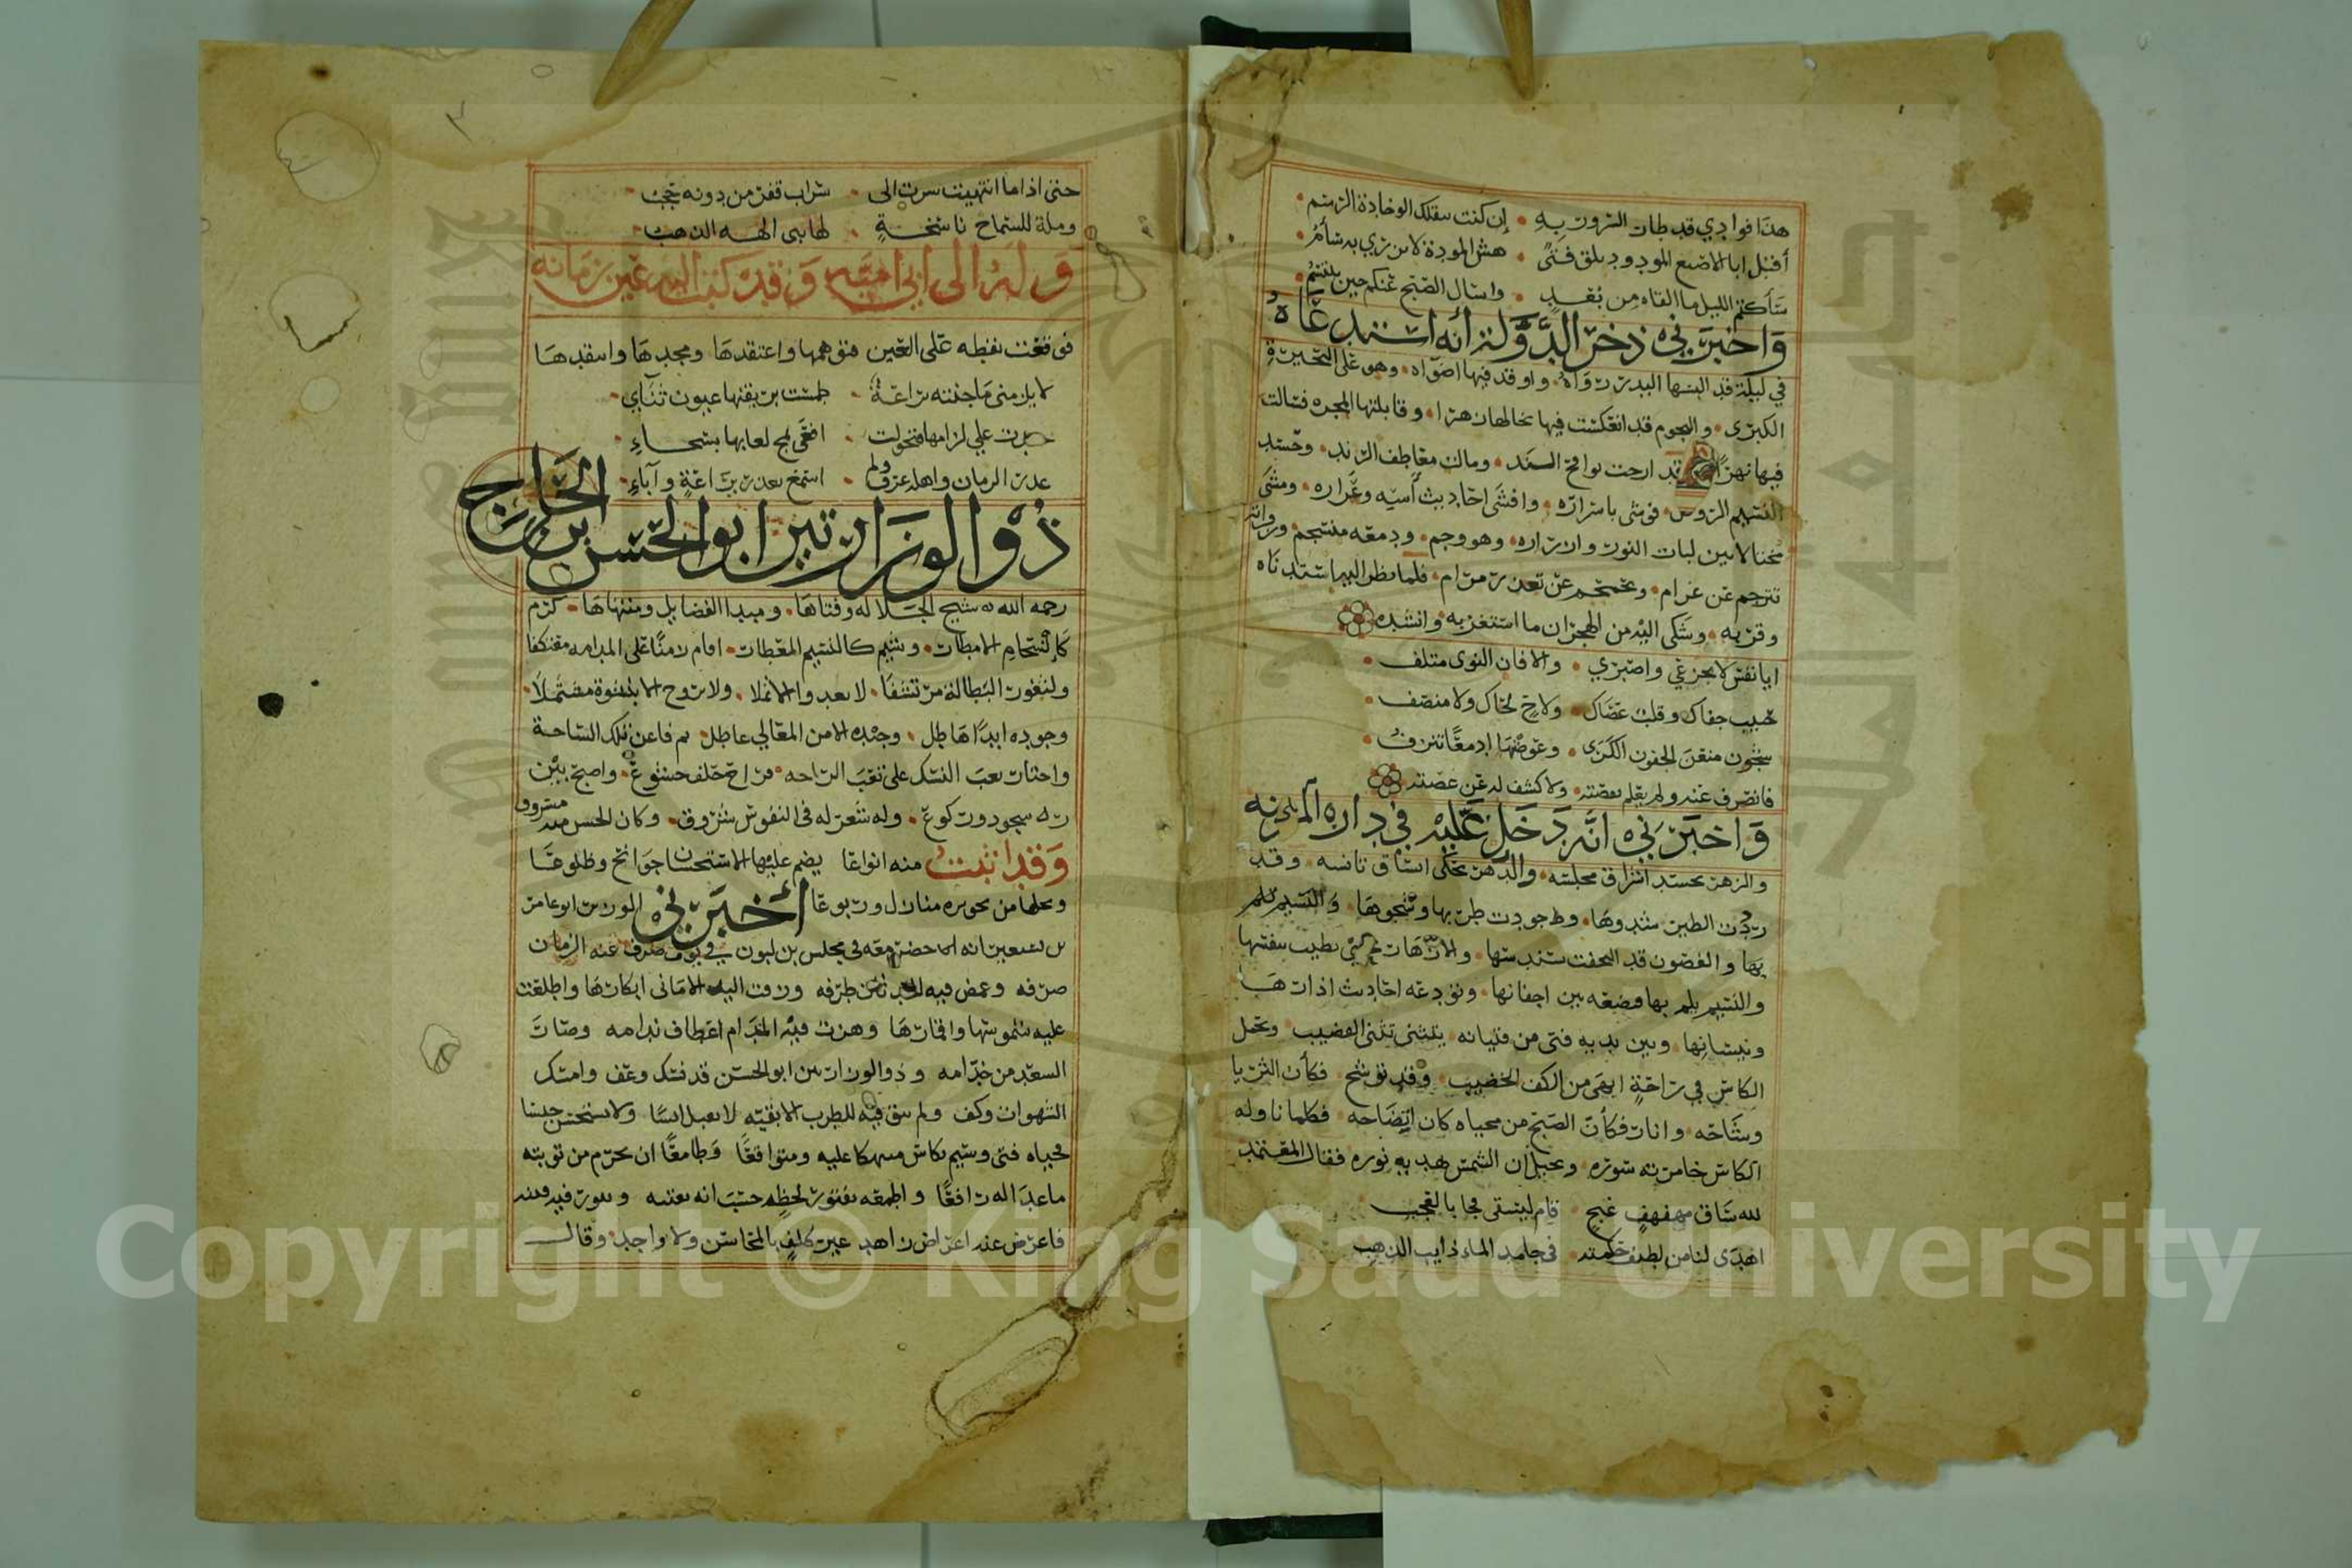 هذا فوادي قد طار السرور به • إن كنت سقلك الوخادة الرسم •
أقبل ابا الاصبع المودود تلق فتى • هش المودة لا يزري به سأم •
سأكتم الليل ما ألقاه من بعد • واسال الصبح عنكم حين يبتسم •
وَاخبرني ذخر الدولة أنه استدعاه
في ليلة قد البسها البدر رواه • واوقد فيها اضواه • وهو على البحيرة
الكبرى • والنجوم قد انعكست فيها تخالها زهرا • وقابلتها المجره فسالت
فيها نهرا • وقد ارجت نوافح الند • ومالت معاطف الرند • وحسد
النسيم الروض • فوشى باسراره • وافشى احاديث آسه وعراره • ومشى
مختالا بين لبات النور وازراره • وهو وجم • ودمعه منسجم • وزفراته
تترجم عن غرام • وتجمجم عن تعذر مرام • فلما نظر اليه استدناه
وقربه • وشكى اليه من الهجران ما استغربه • وانشده
ايا نفس لا تجزعي واصبري • والا فان النوى متلف •
حبيب جفاك وقلب عصاك • ولاح لحاك ولا منصف •
شجون منعن الجفون الكرى • وعوضنها ادمعا تنزف •
فانصرف عنه ولم يعلم بقصته • ولا كشف له عن غصته
وَاخبرني انه دخل عليه في دار المزنيه
والزهر يحسد اشراق مجلسه • والدهر يحكي اتساق تانسه • وقد
رددت الطير شدوها • وجودت طربها وشجوها •
والغصون قد التحفت سندسها • والازهار تحيي بطيب تنفسها
والنسيم يلم بها فتضعه بين اجفانها • وتودعه احاديث اذارها
ونيسانها • وبين يديه فتى من فتيانه يتثنى تثني القضيب • ويحمل
الكاس في راحة ابهى من الكف الخضيب • وقد توشح • فكأن الثريا
وشاحه • وانار فكأن الصبح من محياه كان اتضاحه • فكلما ناوله
الكاس خامره سوره • وتخيل ان الشمس تهديه نوره فقال المعتمد
لله ساق مهفهف غنج • قام ليسقي فجا بالعجب
اهدى لنا من لطيف حكمته • في جامد الماء ذايب الذهب
حتى اذا ما انتهيت سرت الى • سراب قفر من دونه حجب •
وملة للسماح ناسخة • لها نبي الهه الذهب •
وَله الى ابي اميه وَقد كتب اليه عين زمانه
فوقعت نقطه على العين فتوهمها واعتقدها وعدها وانتقدها
لا يلزمني ما جنته يراعة • طمست بريقتها عيون ثنآي •
حقدت علي لزامها فتحولت • افعى تمج لعابها بسحاء •
غدر الزمان واهله عرف ولم • اسمع بغدر يراعة وآباء •
ذُو الوزارتين ابو الحسن بن الحاج
رحمه الله شيخ الجلاله وفتاها • ومبدا الفضايل ومنتهاها • كرم
كانسجام الامطار • وشيم كالنسيم المعطار • اقام زمنا على المدامه معتكفا
ولثغور البطالة مرتشفا • لا يغدو الا ثملا • ولا يروح الا بنشوة مشتملا •
وجوده ابدا هاطل • وجيده الا من المعالي عاطل • ثم فا عن تلك الساحة
واختار تعب النسك على تعب الراحه • فراح حلف خشوع • واصبح بين
سجود وركوع • وله شعر له في النفوس شروق • وكان الحسن منه مسروق
وَقد اثبت منه انواعا يضم عليها الاستحسان جوانح وضلوعا
ويحلها من تحويه منازل وربوعا أخبرني الوزير ابو عامر
بن سعين انه حضر معه في مجلس بن لبون في يوم صرف عنه الزمان
صرفه وغمض فيه الحدثان طرفه وزفت اليه الاماني ابكارها واطلعت
عليه شموسها واقمارها وهزت فيه المدام اعطاف ندامه وصار
السعد من خدامه وذو الوزارتين ابو الحسن قد نسك وعف وامسك
الشهوات وكف ولم يبق فيه للطرب الا بقيه لا تقبل انسا ولا تستحسن جنسا
فحياه فتى وسيم بكاس منهكا عليه ومتواقعا وطامعا ان يحرم من توبته
ما غدا له رافعا واطمعه بفتور لحظه حسب انه يفتنه
فاعرض عنه اعراض زاهد غير كلف بالمحاسن ولا واجد • وقال
Copyright © King Saud University